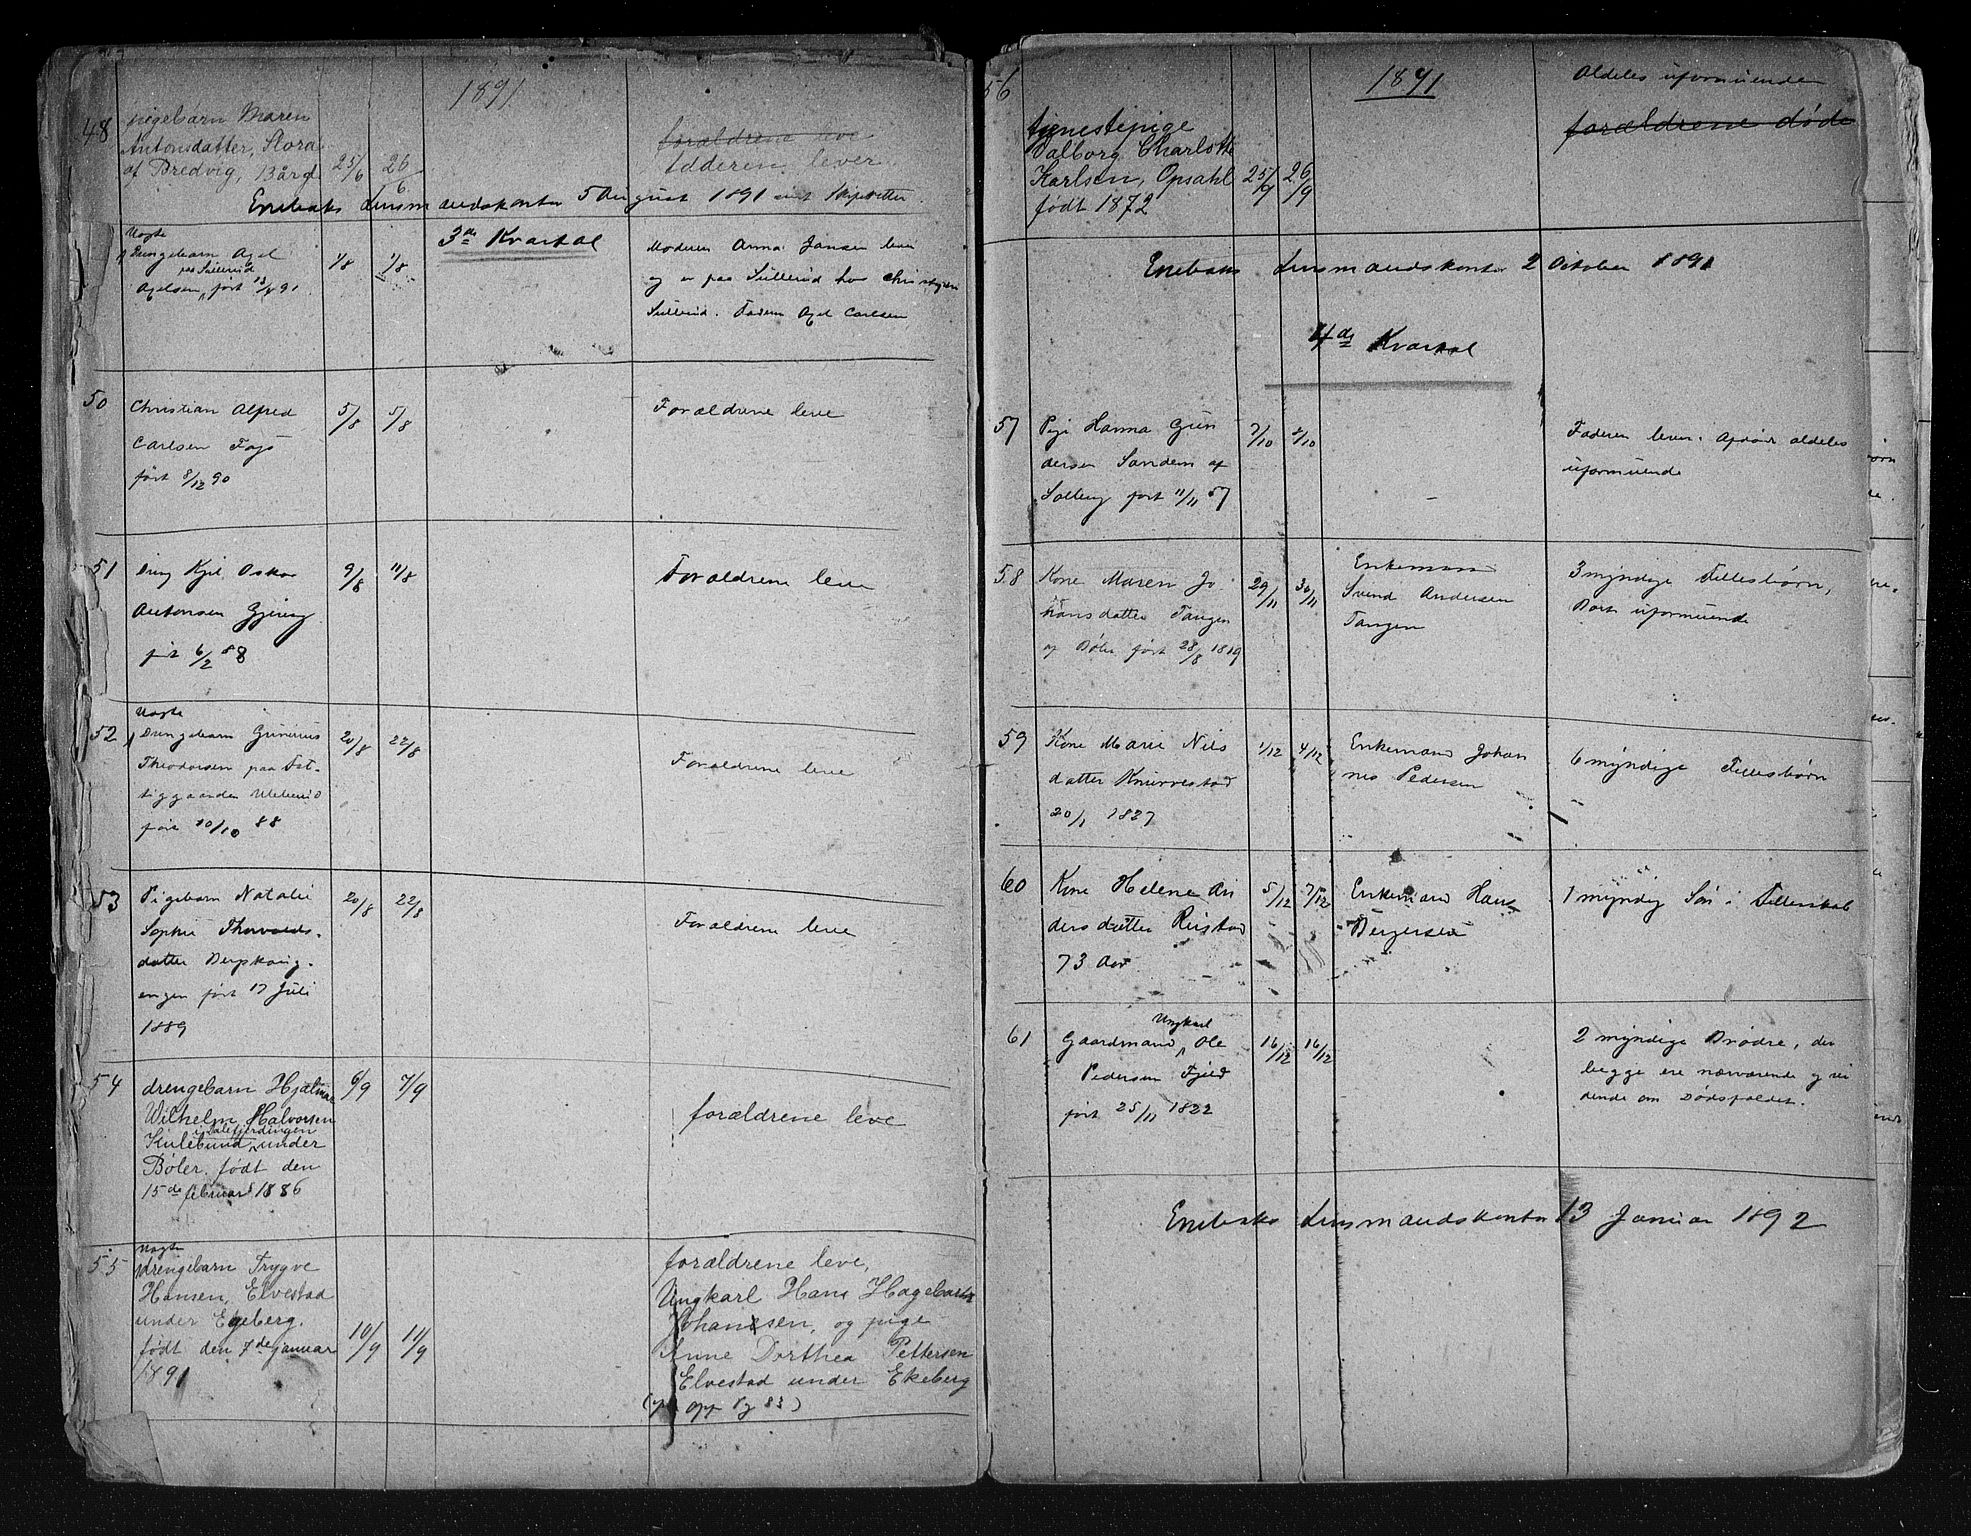 1891
48 pigebarn Maren
Antonsdatter, Stora
af Bredvig, 25/6 26/6
forældrene leve
lever.
Enebaks Lensmandskontor 5 August 1891
3de Kvartal
Uægte
Drengebarn Axel
paa Sillerud
Axelsen, født 91
1/8 1/8
Moderen Anna Jansen lever
og er paa Sillerud hos
Sillerud. Faderen Axel Carlsen
50 Christian Alfred
Carlsen
født 8/12 90
5/8 5/8
Forældrene leve
51 Oskar
Antonsen
født 6/2 88
9/8 11/8
Forældrene leve
Uægte
52 Drengebarn
Theodorsen paa Fat-
tiggaarden
10/10 88
20/8 22/8
Forældrene leve
53 Pigebarn Natalie
Sophie Thorvalds-
datter
engen født 17 Juli
1889
20/8 22/8
Forældrene leve
54 drengebarn Hjalmar
Wilhelm Halvorsen
i Dalefjerdingen
Kulebund under
Bøler, født den
15de februar 1886
6/9 7/9
forældrene leve
Uægte
55 drengebarn Trygve
Hansen, Elvestad
under Ekeberg.
født den 7de januar
1891
10/9 11/9
forældrene leve,
Ungkarl Hans Hagebart
Johansen, og pige
Anne Dorthea Pettersen
Elvestad under Ekeberg
opp Pg 83)
56
1891
Aldeles uformuende
forældrene døde
tjenestepige
Valborg Charlotte
Karlsen, Opsahl
født 1872
25/9 26/9
Enebaks Lensmandskontor 2 October 1891
4de Kvartal
57 Pige Hanna Gun
dersen Sandem af
Solberg født 11/11 57
7/10 8/10
Faderen lever. Afdøde aldeles
uformuende
58 Kone Maren Jo
hansdatter Tangen
af Bøler født 28/8 1819
29/11 30/11
Enkemand
Svend Andersen
Tangen
3 myndige Fellesbørn,
Boet uformuende
59 Kone Marie Nils
datter Knurvestad
20/1 1827
1/12 4/12
Enkemand Johan
nes Pedersen
6 myndige Fellesbørn
60 Kone Helene An
dersdatter Ristad
73 Aar
5/12 7/12
Enkemand Hans
Bergersen
1 myndig Søn i Fellesskab
61
Ungkarl
Gaardmand Ole
Pedersen Fjeld
født 25/11 1822
16/12 16/12
2 myndige Brødre, der
begge ere nærværende og vi
dende om Dødsfaldet.
Enebaks Lensmandskontor 13 Januar 1892